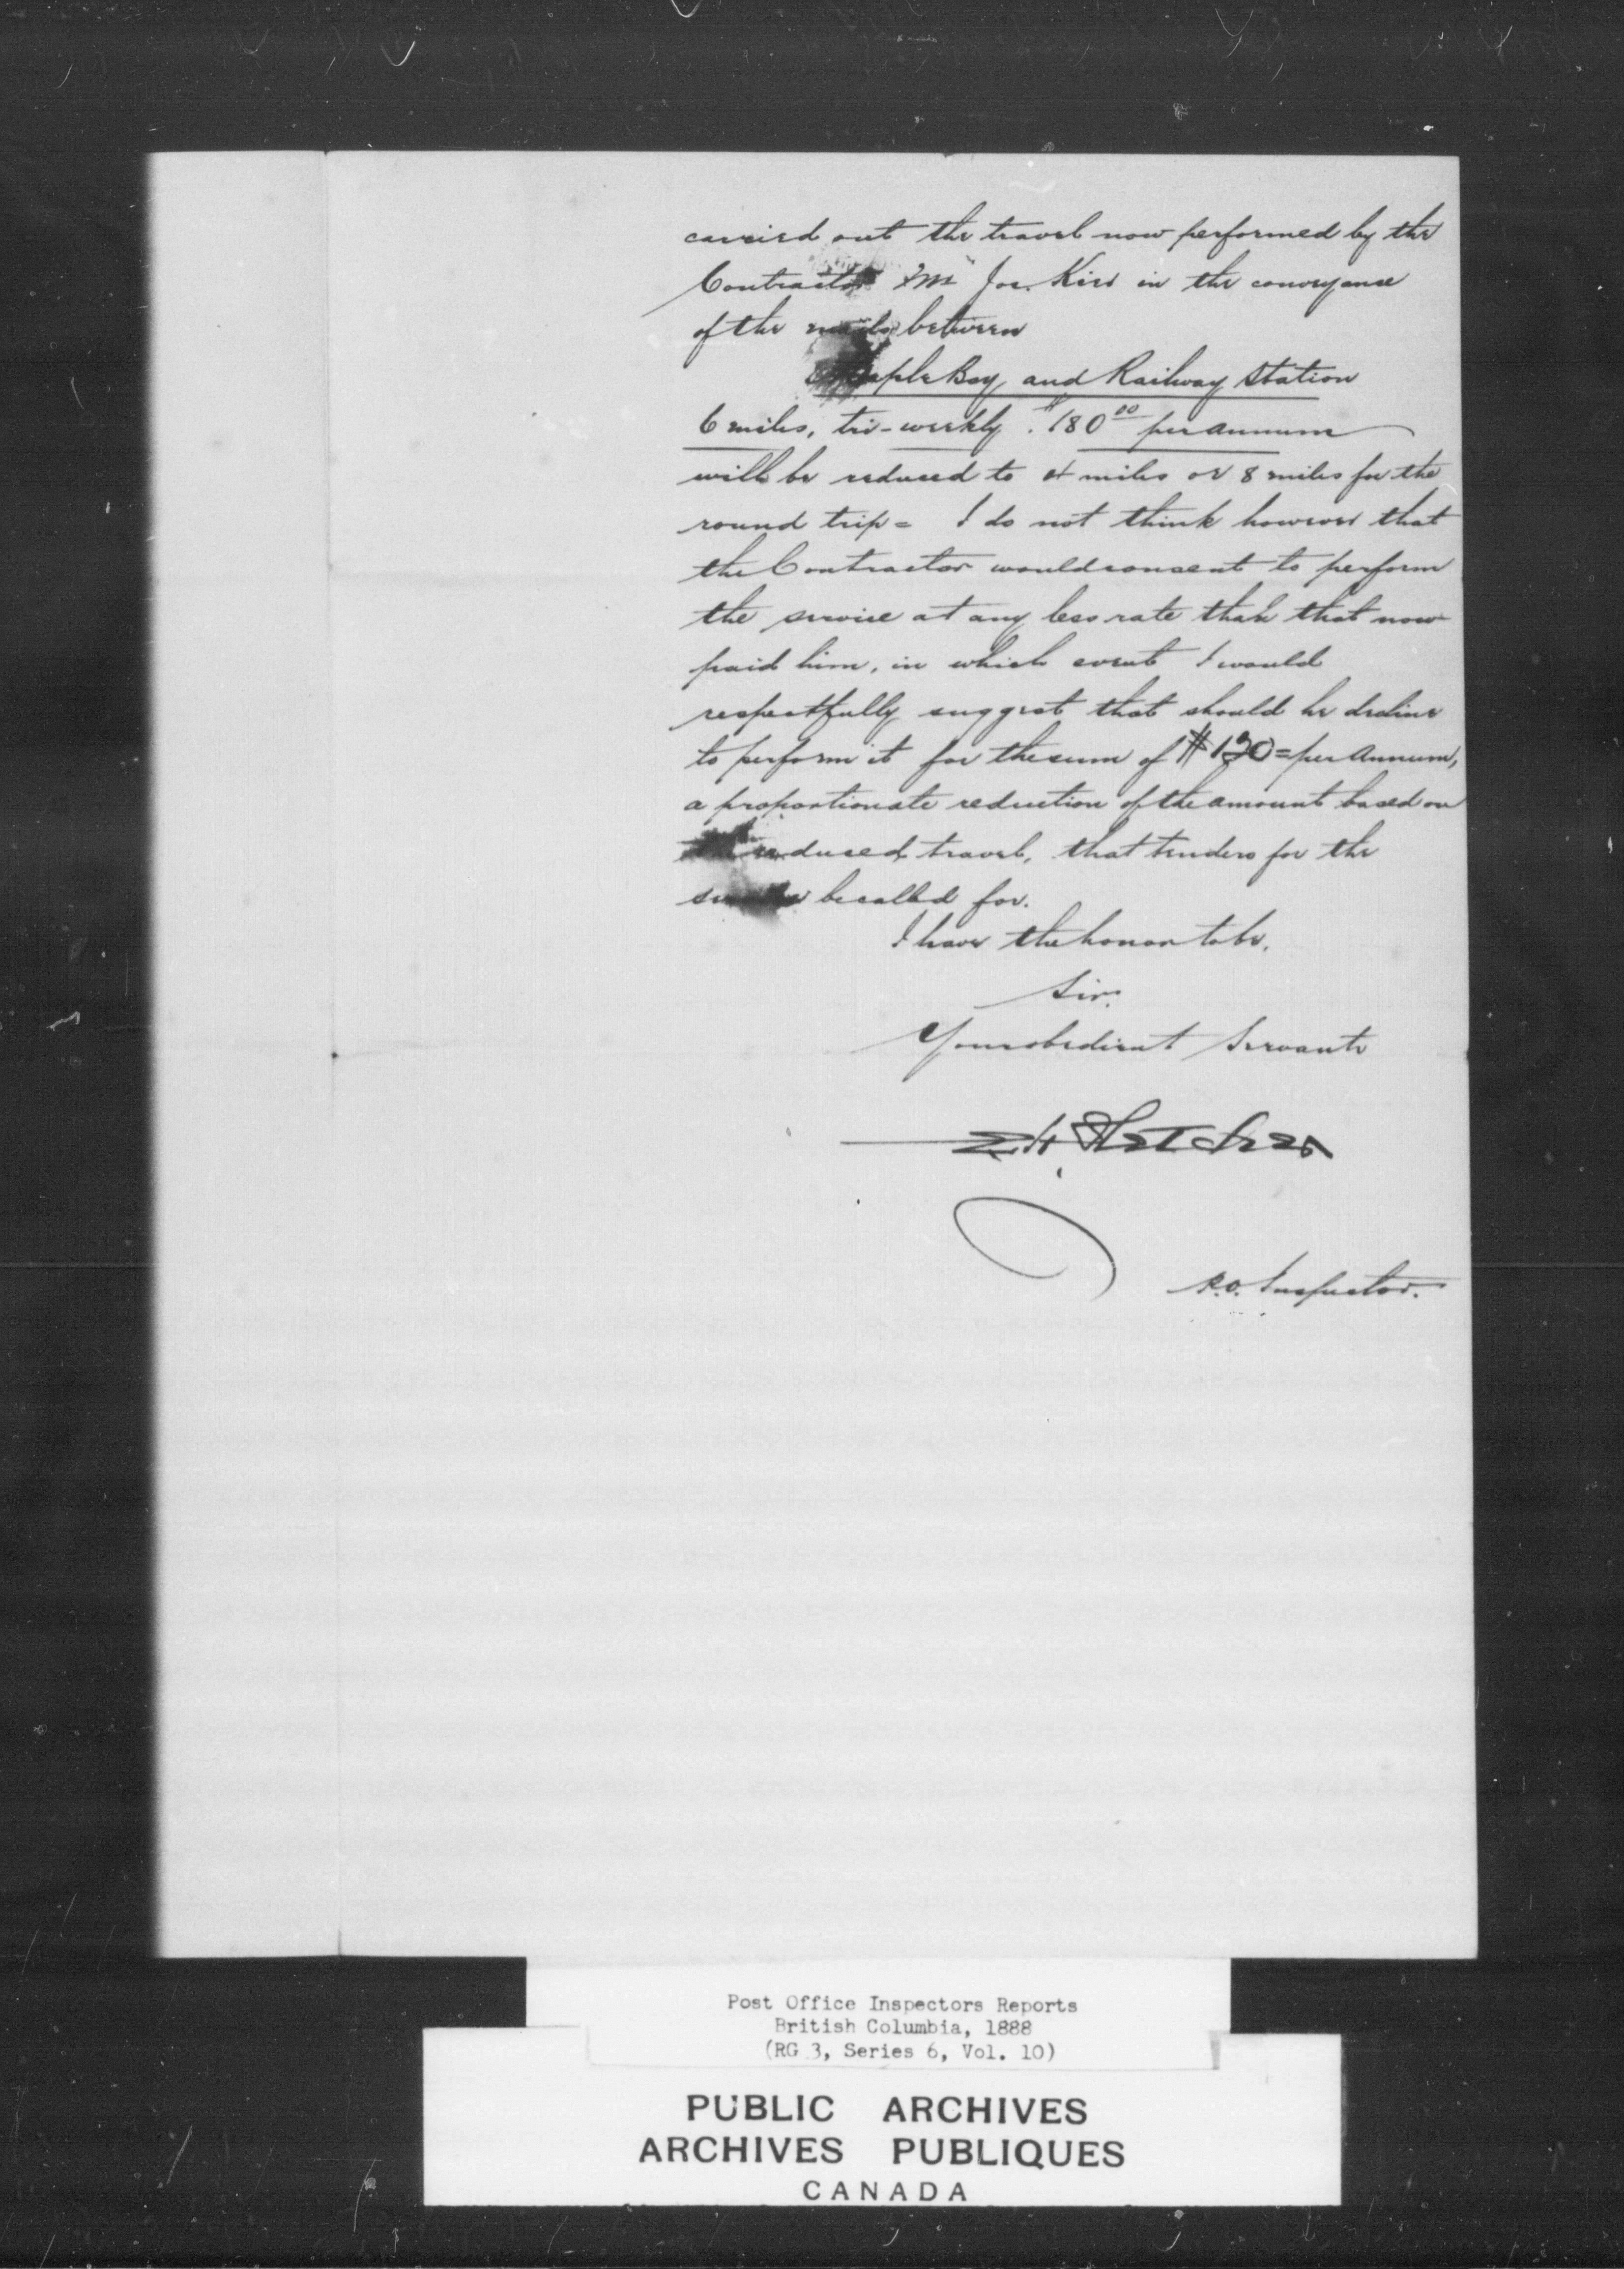 carried out the travel now performed by the
Contractor Mr Jos. Kier in the conveyance
of the mails between
Maple Bay and Railway Station
6 miles, tri-weekly. $180 00 per annum
will be reduced to 4 miles or 8 miles for the
round trip = I do not think however that
the Contractor would consent to perform
the service at any less rate than that now
paid him, in which event I would
respectfully suggest that should he decline
to perform it for the sum of $120= per annum,
a proportionate reduction of the amount based on
the reduced travel, that tenders for the
service be called for.
I have the honor to be,
Sir,
Your obedient Servant
E.H. Fletcher
P.O. Inspector.
Post Office Inspectors Reports
British Columbia, 1888
(RG 3, Series 6, Vol. 10)
PUBLIC ARCHIVES
ARCHIVES PUBLIQUES
CANADA